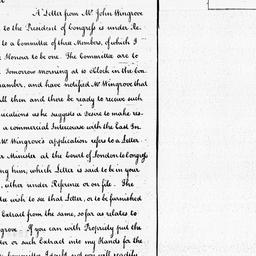 A Letter from Mr John Wingrove
to the President of Congress is under Re-
to a Committee of three Members, of which I
Honour to be one. The Committee are to
Tomorrow morning at 10 oClock in the Con
hamber, and have notified Mr Wingrove that
all then and there be ready to receive such
ucations as he suggests a Desire to make res-
a commercial Intercourse with the East In
Mr Wingrove's application refers to a Letter
r Minister at the Court of London to Congress
ing him, which Letter is said to be in your
, either under Reference or on file. The
ee wish to see that Letter, or to be furnished
Extract from the same, so far as relates to
grove. If you can with Propriety put the
ter or such Extract into my Hands for the
Committee I doubt not you will readily